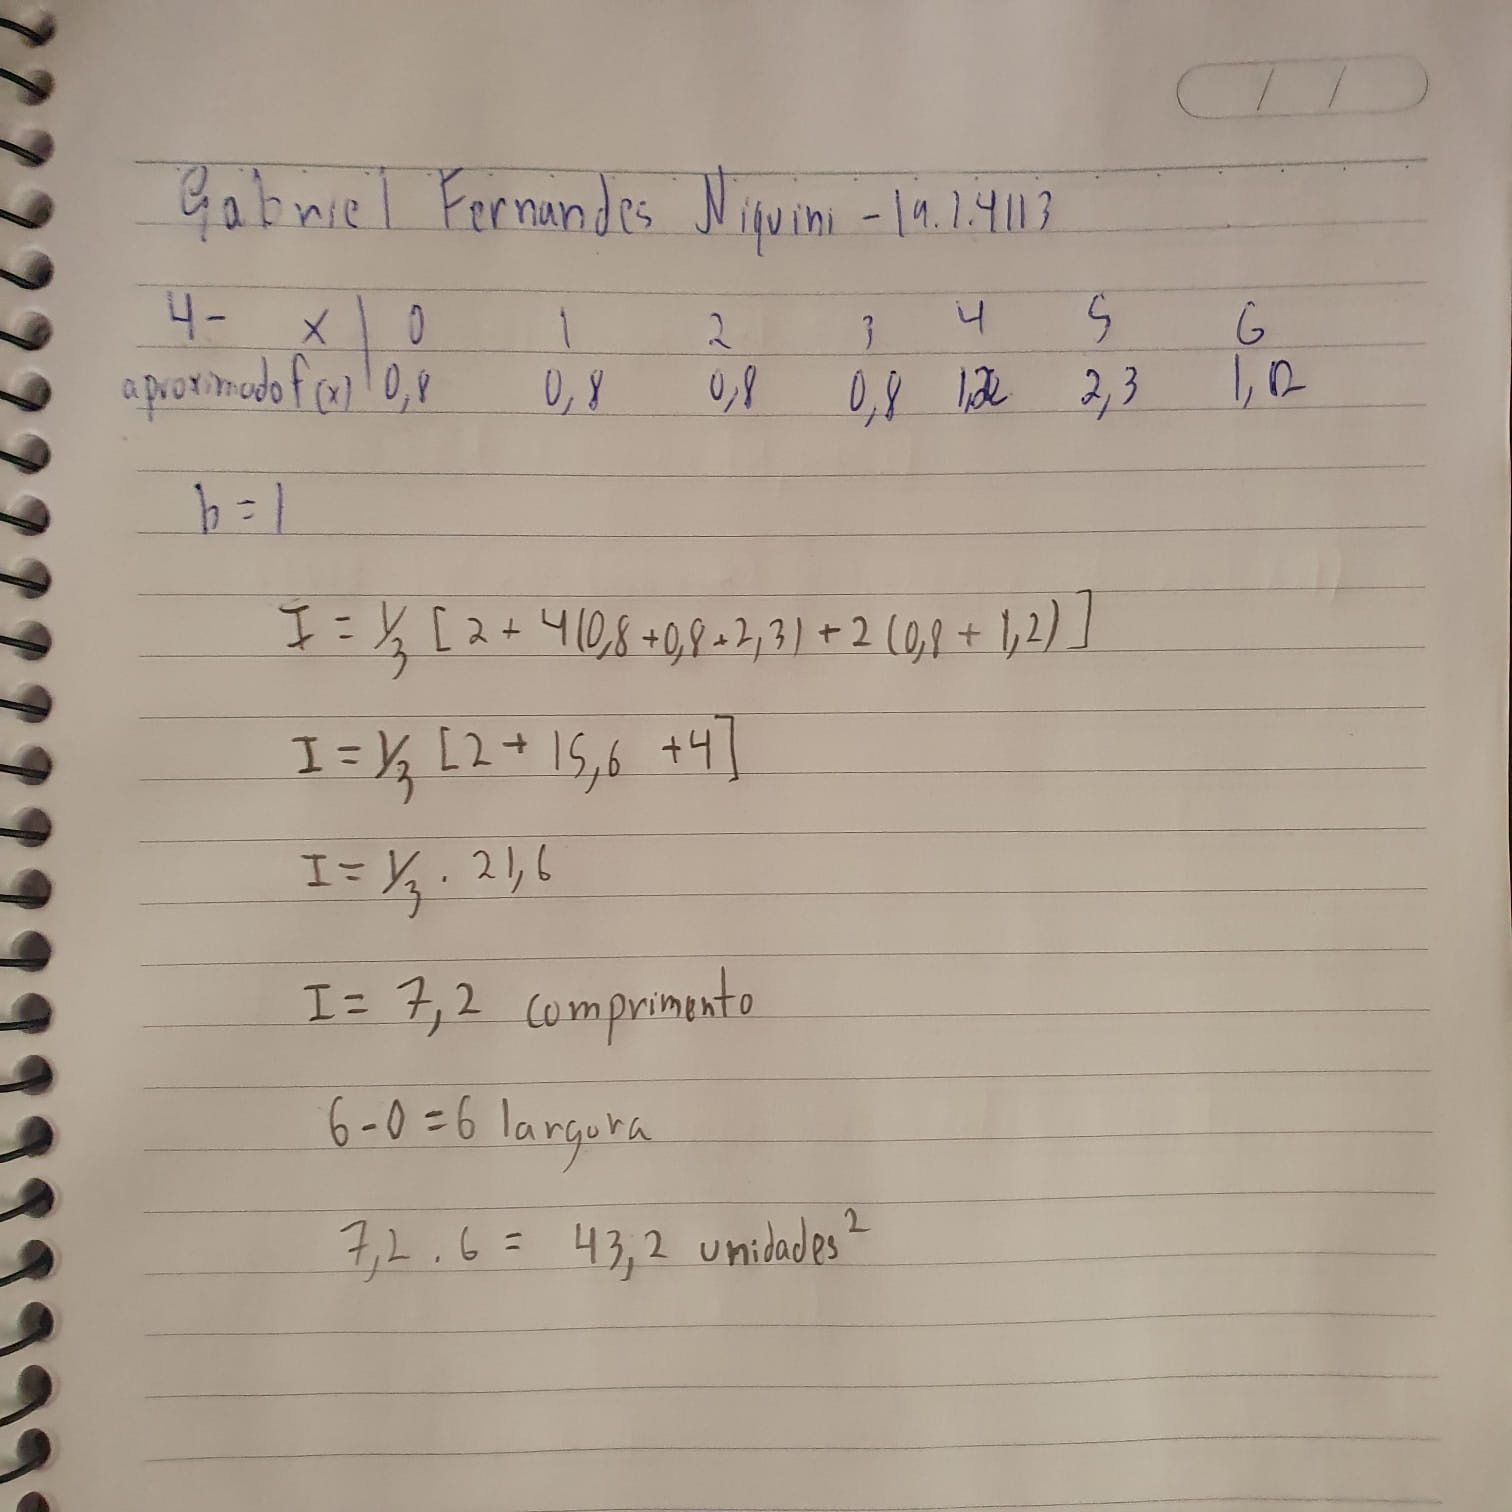 Gabriel Fernandes Niquini - 19.1.4113
4- x | 0 1 2 3 4 5 6
aproximado f(x) | 0,8 0,8 0,8 0,8 1,2 2,3 1,2
h = 1
I = 1/3 [2 + 4(0,8 + 0,8 + 2,3) + 2(0,8 + 1,2)]
I = 1/3 [2 + 15,6 + 4]
I = 1/3 . 21,6
I = 7,2 comprimento
6 - 0 = 6 largura
7,2 . 6 = 43,2 unidades²